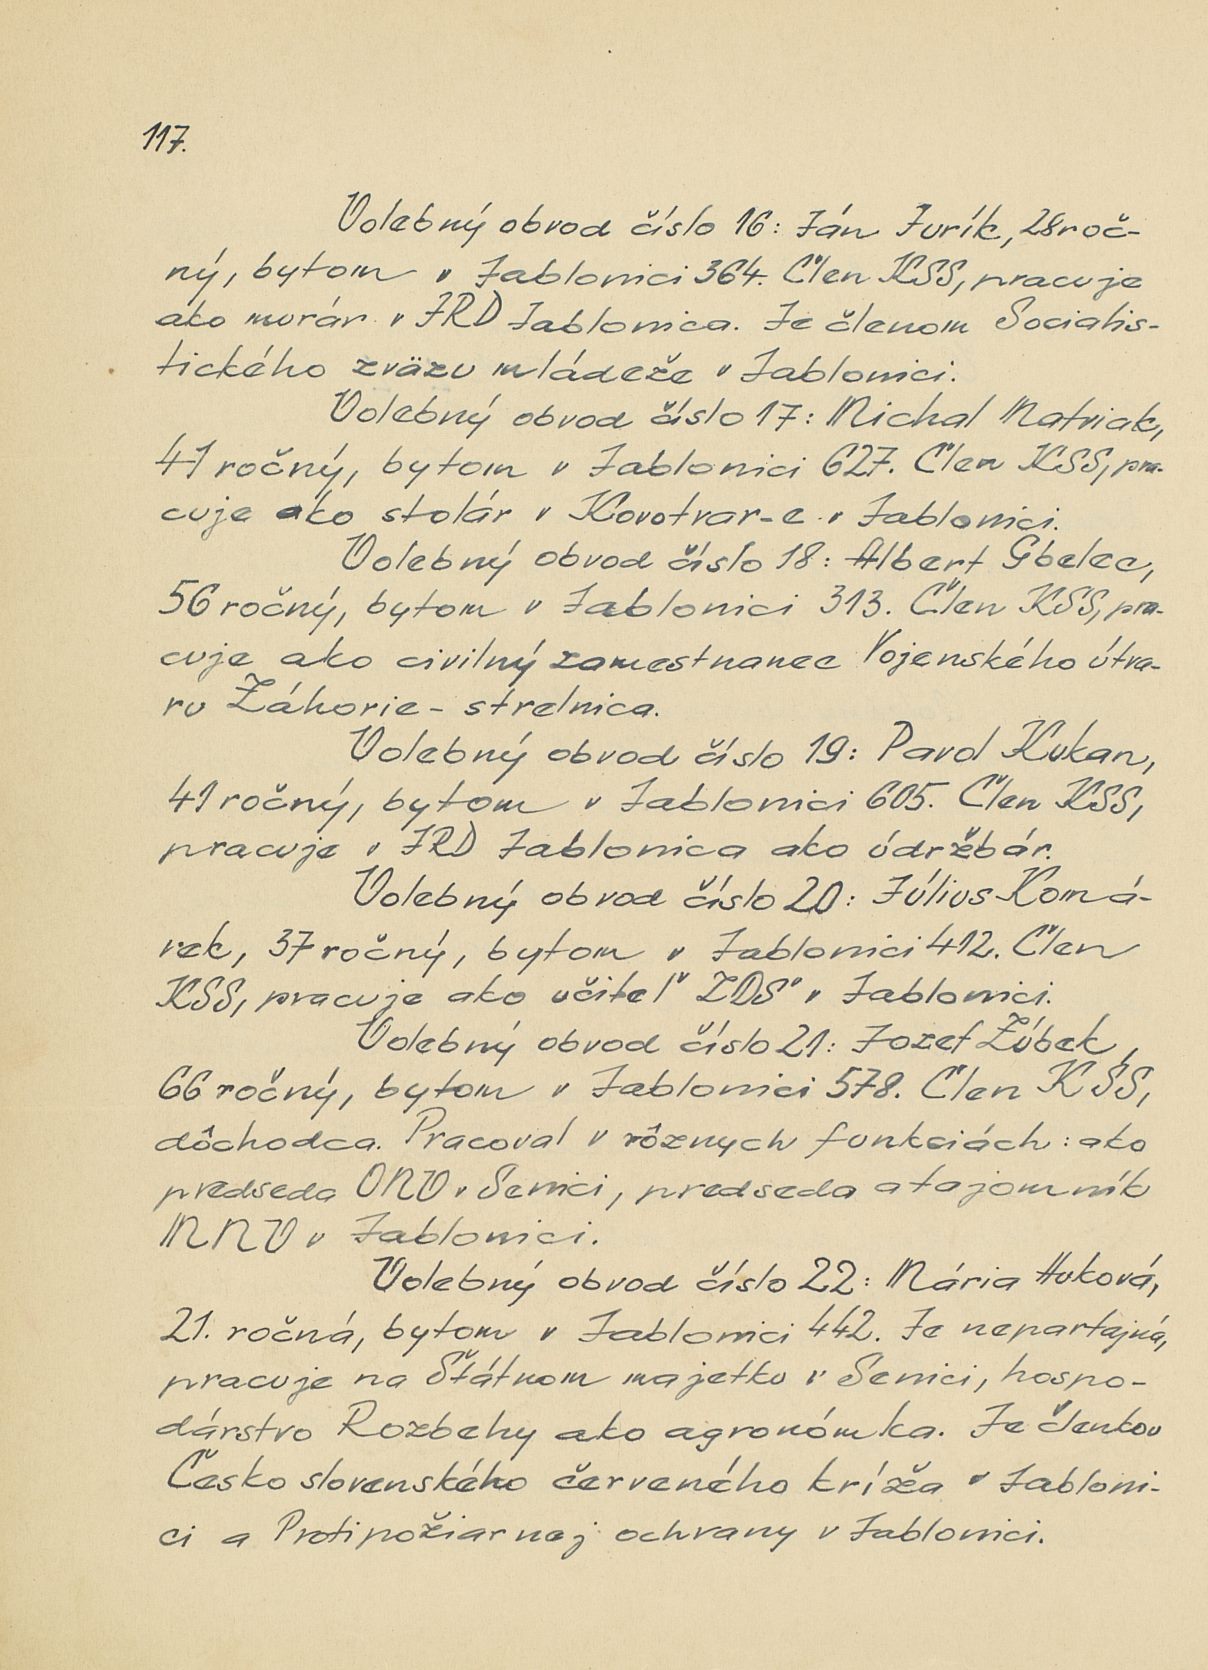 117.
Volebný obvod číslo 16: Ján Jurík, 28 roč-
ný, bytom v Jablonici 364. Člen KSS, pracuje
ako murár v JRD Jablonica. Je členom Socialis-
tického zväzu mládeže v Jablonici.
Volebný obvod číslo 17: Michal Matviak,
41 ročný, bytom v Jablonici 627. Člen KSS, pra-
cuje ako stolár v Kovotvar-e v Jablonici.
Volebný obvod číslo 18: Albert Gbelec,
56 ročný, bytom v Jablonici 313. Člen KSS, pra-
cuje ako civilný zamestnanec Vojenského útva-
ru Záhorie - strelnica.
Volebný obvod číslo 19: Pavol Kukan,
41 ročný, bytom v Jablonici 605. Člen KSS,
pracuje v JRD Jablonica ako údržbár.
Volebný obvod číslo 20: Július Komá-
rek, 37 ročný, bytom v Jablonici 412. Člen
KSS, pracuje ako učitel " ZDŠ" v Jablonici.
Volebný obvod číslo 21: Jozef Žúbek,
66 ročný, bytom v Jablonici 578. Člen KSS,
dôchodca. Pracoval v rôznych funkciách: ako
predseda ONV v Senici, predseda a tajomník
MNV v Jablonici.
Volebný obvod číslo 22: Mária Huková,
21. ročná, bytom v Jablonici 442. Je nepartajná,
pracuje na Štátnom majetku v Senici, hospo-
dárstvo Rozbehy ako agronómka. Je členkou
Česko slovenského červeného kríža v Jabloni-
ci a Protipožiarnej ochrany v Jablonici.